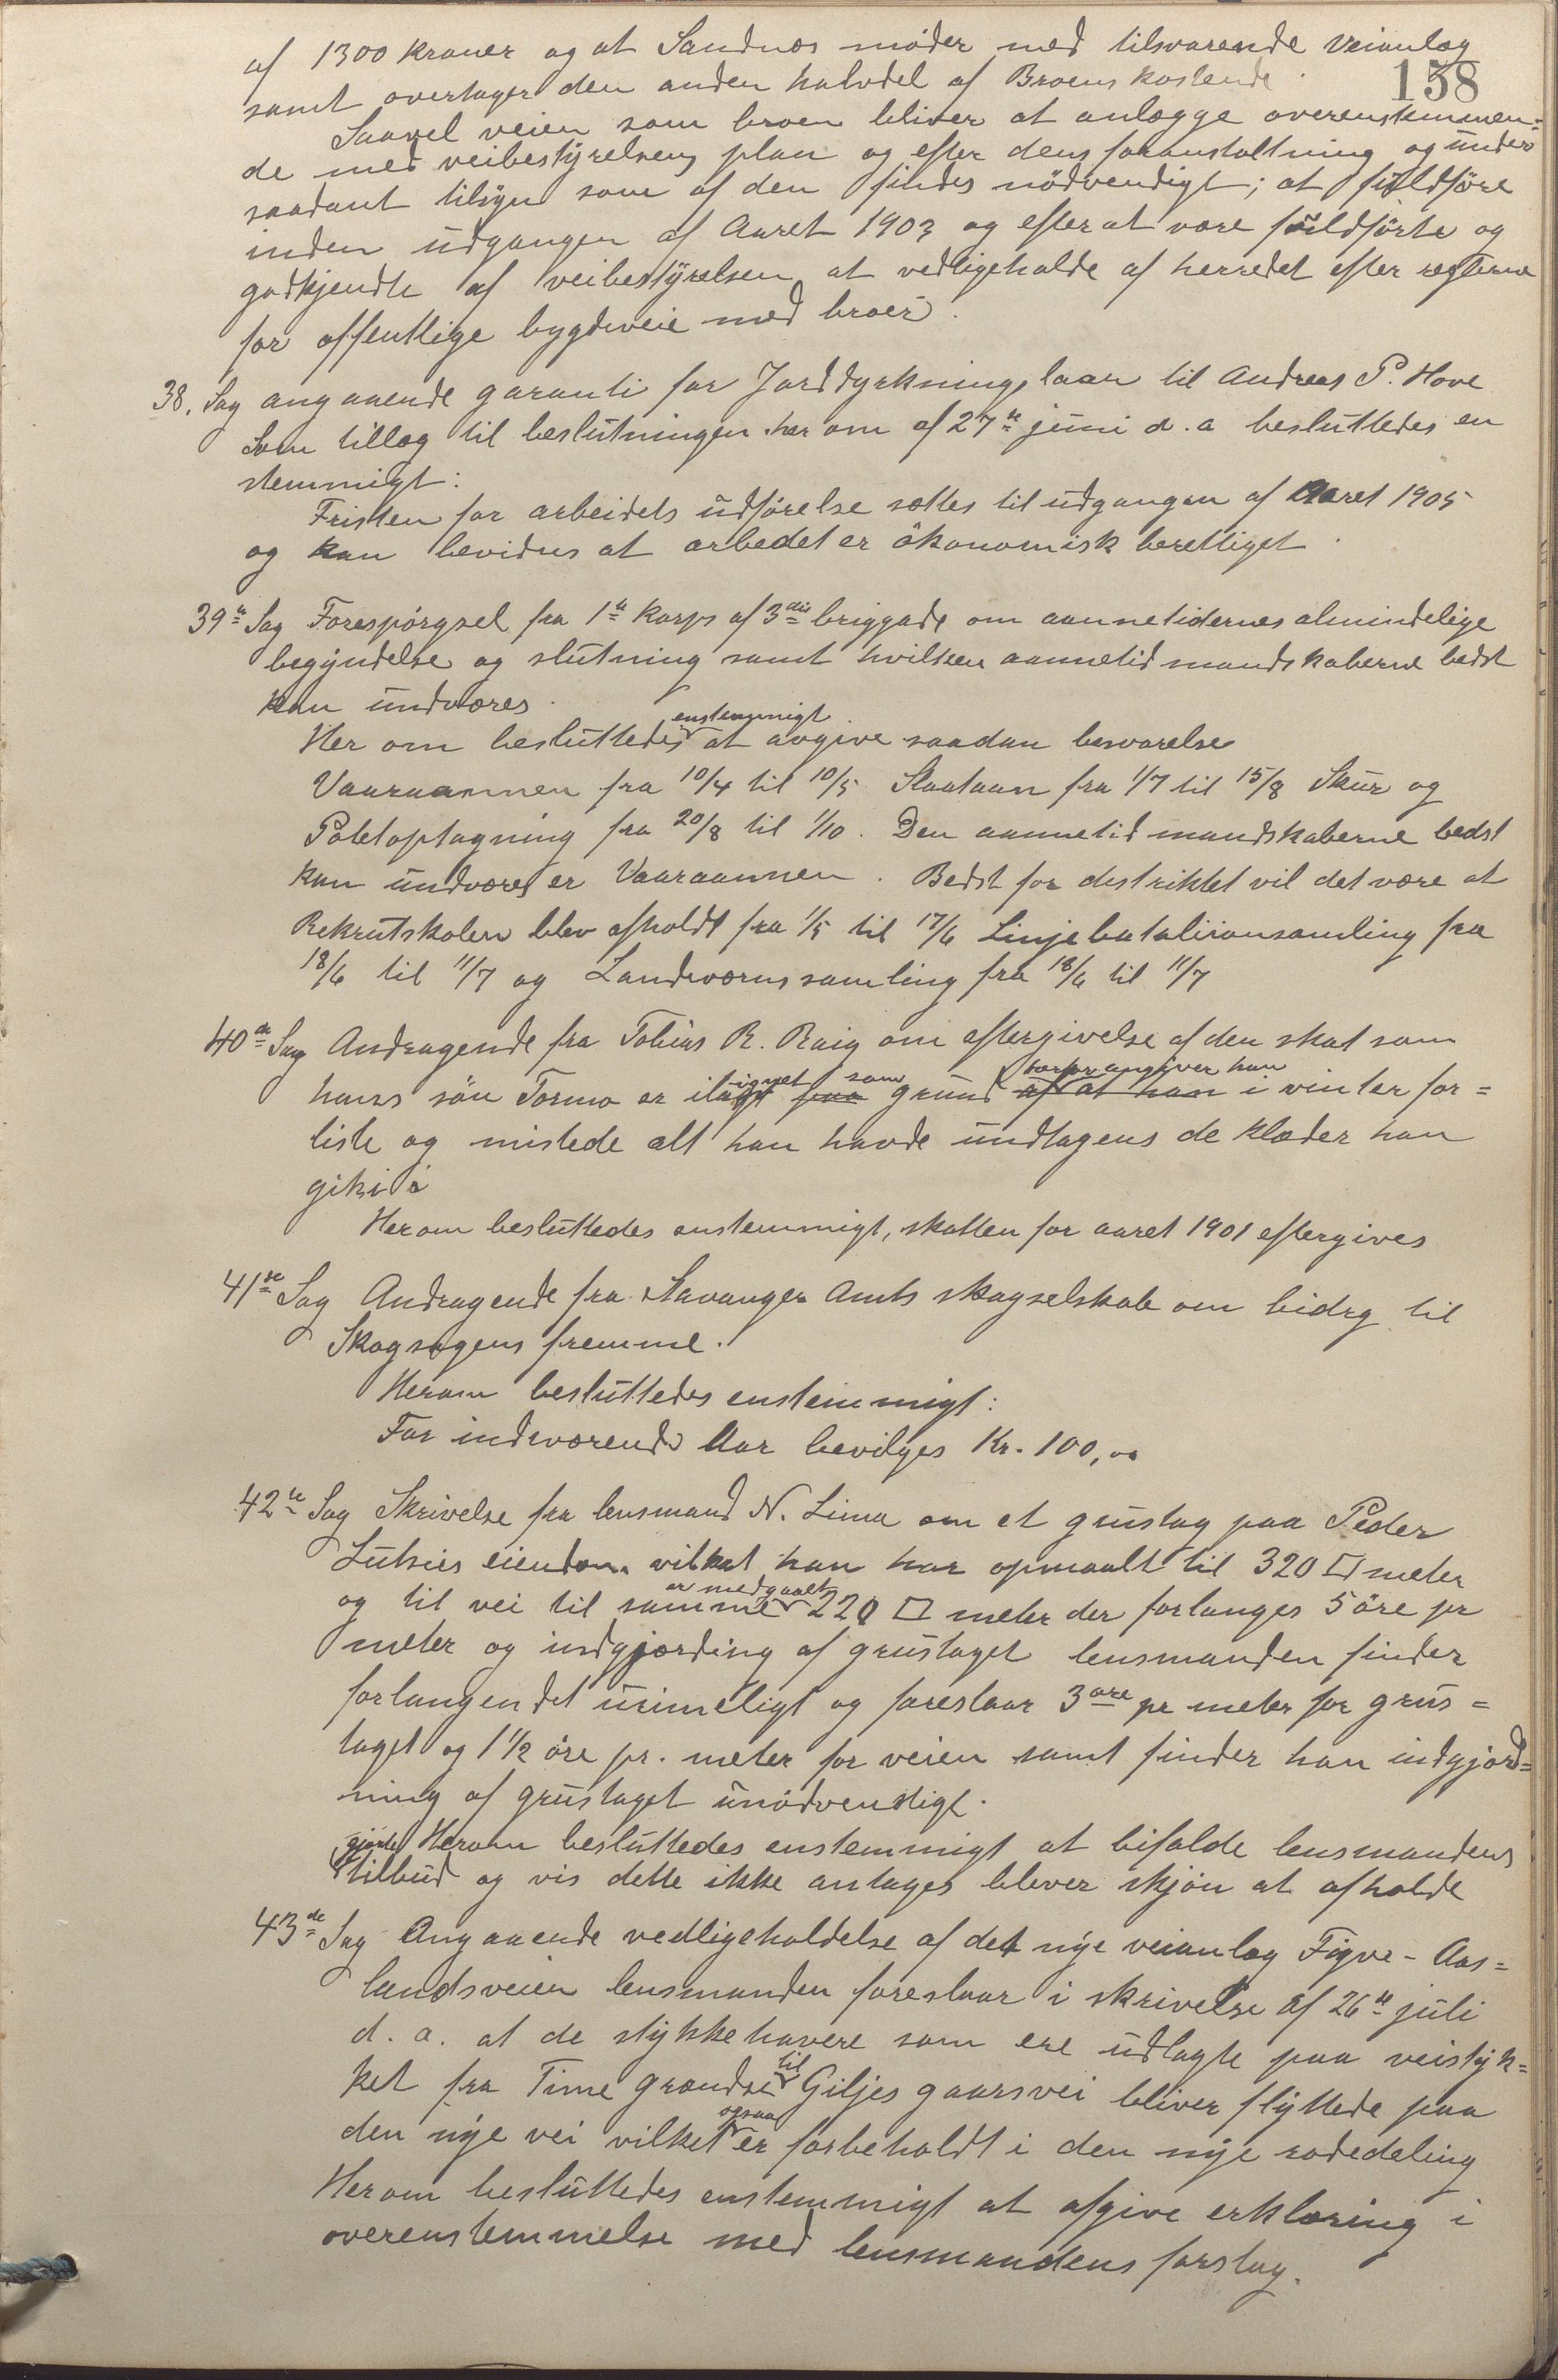 158
af 1300 kroner og at Sandnæs møder med tilsvarende veianlæg
samt overtager den anden halvdel af Broens kostende.
Saavel veien som broen bliver at anlægge overenstemmen=
de med veibestyrelsens plan og efter dens foranstaltning og under
saadant tilsyn som af den findes nödvendigt; at fuldföre
inden udgangen af Aaret 1903 og efter at være fuldförte og
godkjendte af veibestyrelsen at vedligeholde af herredet efter reglerne
for offentlige bygdeveie med broer.
38. Sag angaaende garanti for Jorddyrkningslaan til Andreas P. Hove
Som tillæg til beslutningen her om af 27de juni d. a besluttedes en
stemmigt:
Fristen for arbeidets udförelse sættes til udgangen af Aaret 1905
og kan bevidnes at arbedet er ökonomisk berettiget.
39te Sag Forespörgsel fra 1ste Korps af 3die briggade om aannetidernes almindelige
begyndelse og slutning samt hvilken aannetid mandskaberne bedst
kan undværes.
Her om besluttedes enstemmigt at avgive saadan besvarelse
Vaaraannen fra 10/4 til 10/5 Slaataan fra 1/7 til 15/8 Skur og
Potetoptagning fra 20/8 til 1/10. Den aannetid mandskaberne bedst
kan undværes er Vaaraannen. Bedst for distriktet vil det være at
Rekrutskolen blev afholdt fra 1/5 til 17/6 Linjebataliionsamling fra
18/6 til 11/7 og Landeværnssamling fra 18/6 til 11/7
40de Sag Andragende fra Tobias R. Raig om eftergivelse af den skat som
hans sön Tormo er ilignet som grund herfor angiver han i vinter for=
liste og mistede alt han havde undtagens de klæder han
gik i
Herom besluttedes enstemmigt, skatten for aaret 1901 eftergives
41de Sag Andragende fra Stavanger Amts skogselskab om bidrg til
Skogsagens fremme.
Herom besluttedes enstemmigt:
For indeværende Aar bevilges Kr. 100,00
42de Sag Skrivelse fra lensmand N. Lima om et grustag paa Peder
Lutsies eiendom vilket han har opmaalt til 320 □ meter
og til vei til samme er medgaaet 220 □ meter der forlanges 5 öre pr
meter og indgjærding af grustaget lensmanden finder
forlangendet urimeligt og foreslaar 3 öre pr meter for grus=
taget og 1 1/2 öre pr. meter for veien samt finder han indgjærd=
ning af grustaget unödvendigt.
Herom besluttedes enstemmigt at bifalde lensmandens
gjorte tilbud og vis dette ikke antages blever skjön at afholde
43de Sag Angaaende vedligeholdelse af det nye veianlæg Figve - Aas=
landsveien lensmanden foreslaar i skrivelse af 26de juli
d. a. at de stykkehavere som ere udlagte paa veistyk=
ket fra Time grændse til Giljes gaarsvei bliver flyttede paa
den nye vei vilket ogsaa er forbeholdt i den nye rodedeling
Herom besluttedes enstemmigt at afgive erklæring i
overenstemmelse med lensmandens forslag.